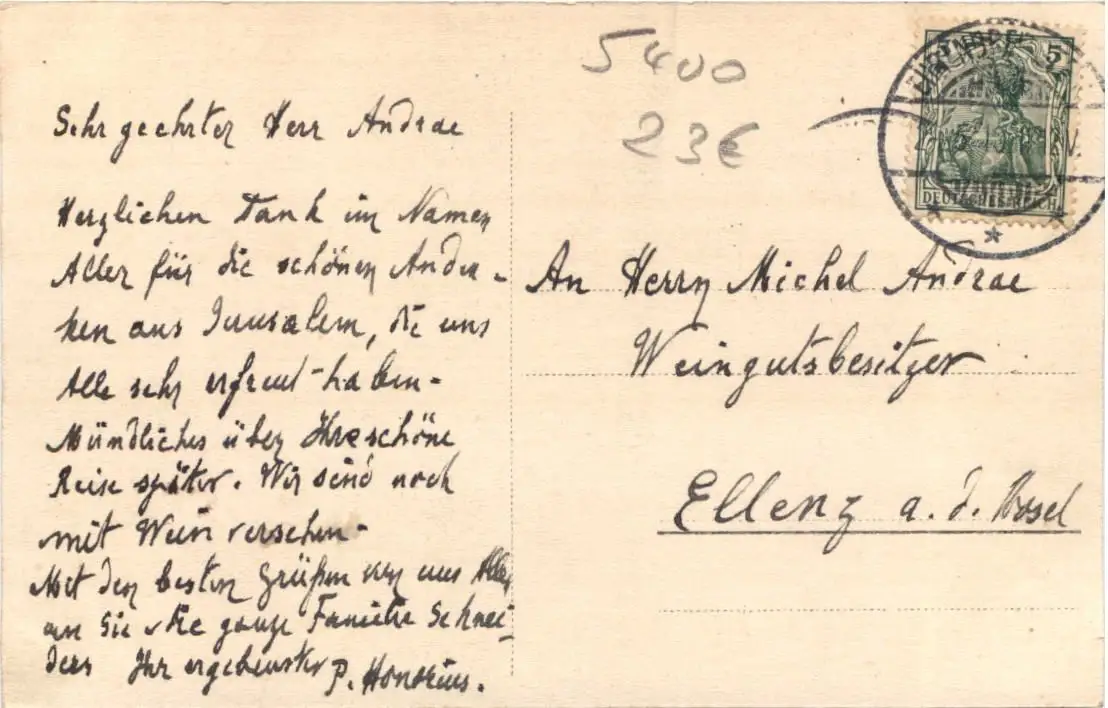 5400
23€
5
DEUTSCHES REICH
Sehr geehrter Herr Andrae
Herzlichen Dank im Namen
Aller für die schönen Anden-
ken aus Jerusalem, die uns
Alle sehr erfreut haben.
Mündliches über Ihre schöne
Reise später. Wir sind noch
mit Wein versehen.
Mit den besten Grüßen von uns Allen
an Sie die ganze Familie Schnei-
ders Ihr ergebenster P. Honorius.
An Herrn Michel Andrae
Weingutsbesitzer
Ellenz a. d. Mosel